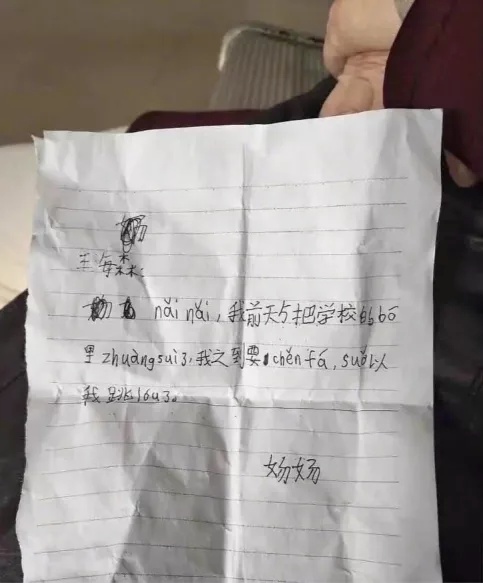 nǎi nǎi，我前天把学校的bō
里zhuàngsuì3，我之到要chěnfá，suǒ以
我跳lou3。